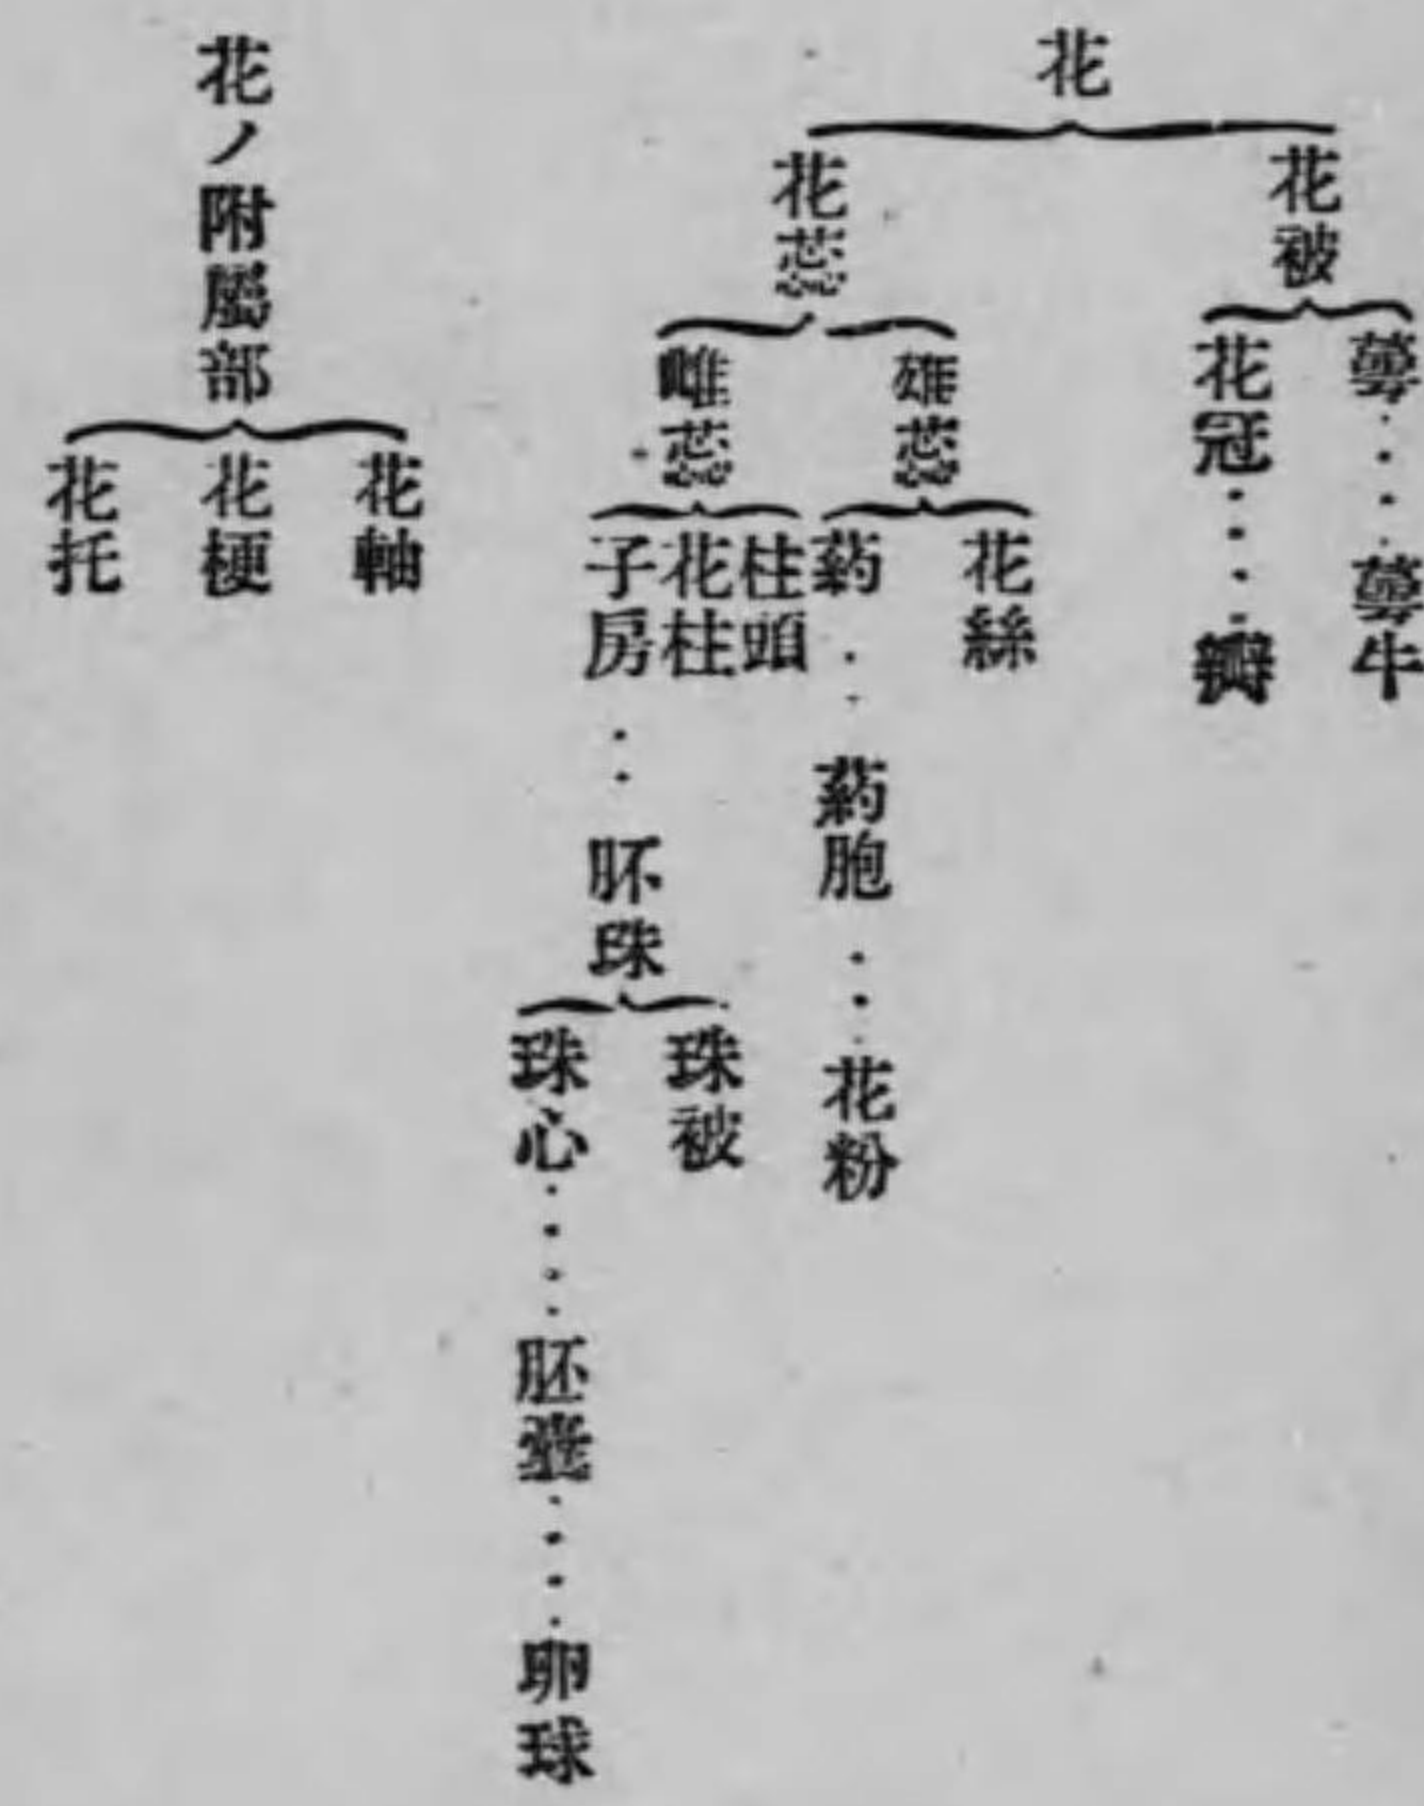 花
花被
萼‥‥萼片
花冠‥‥瓣
花蕊
雄蕊
花絲
葯‥葯胞‥花粉
雌蕊
柱頭
花柱
子房‥胚珠
珠被
珠心‥‥胚囊‥‥卵球
花ノ附屬部
花軸
花梗
花托